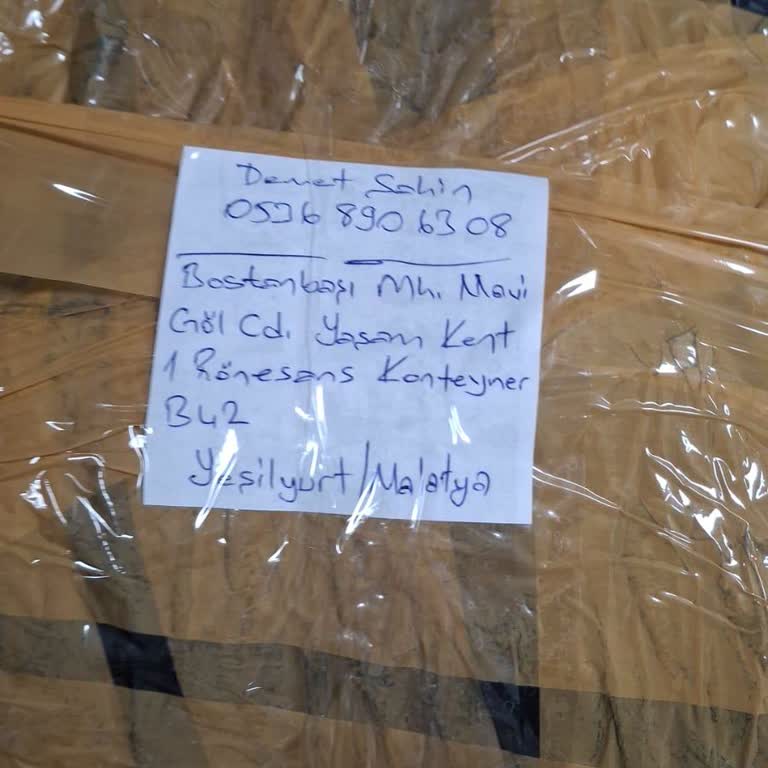 Demet Şahin
0536 890 63 08
Bostanbaşı Mh. Mavi
Göl Cd. Yaşam Kent
1 Rönesans Konteyner
B42
Yeşilyurt/Malatya